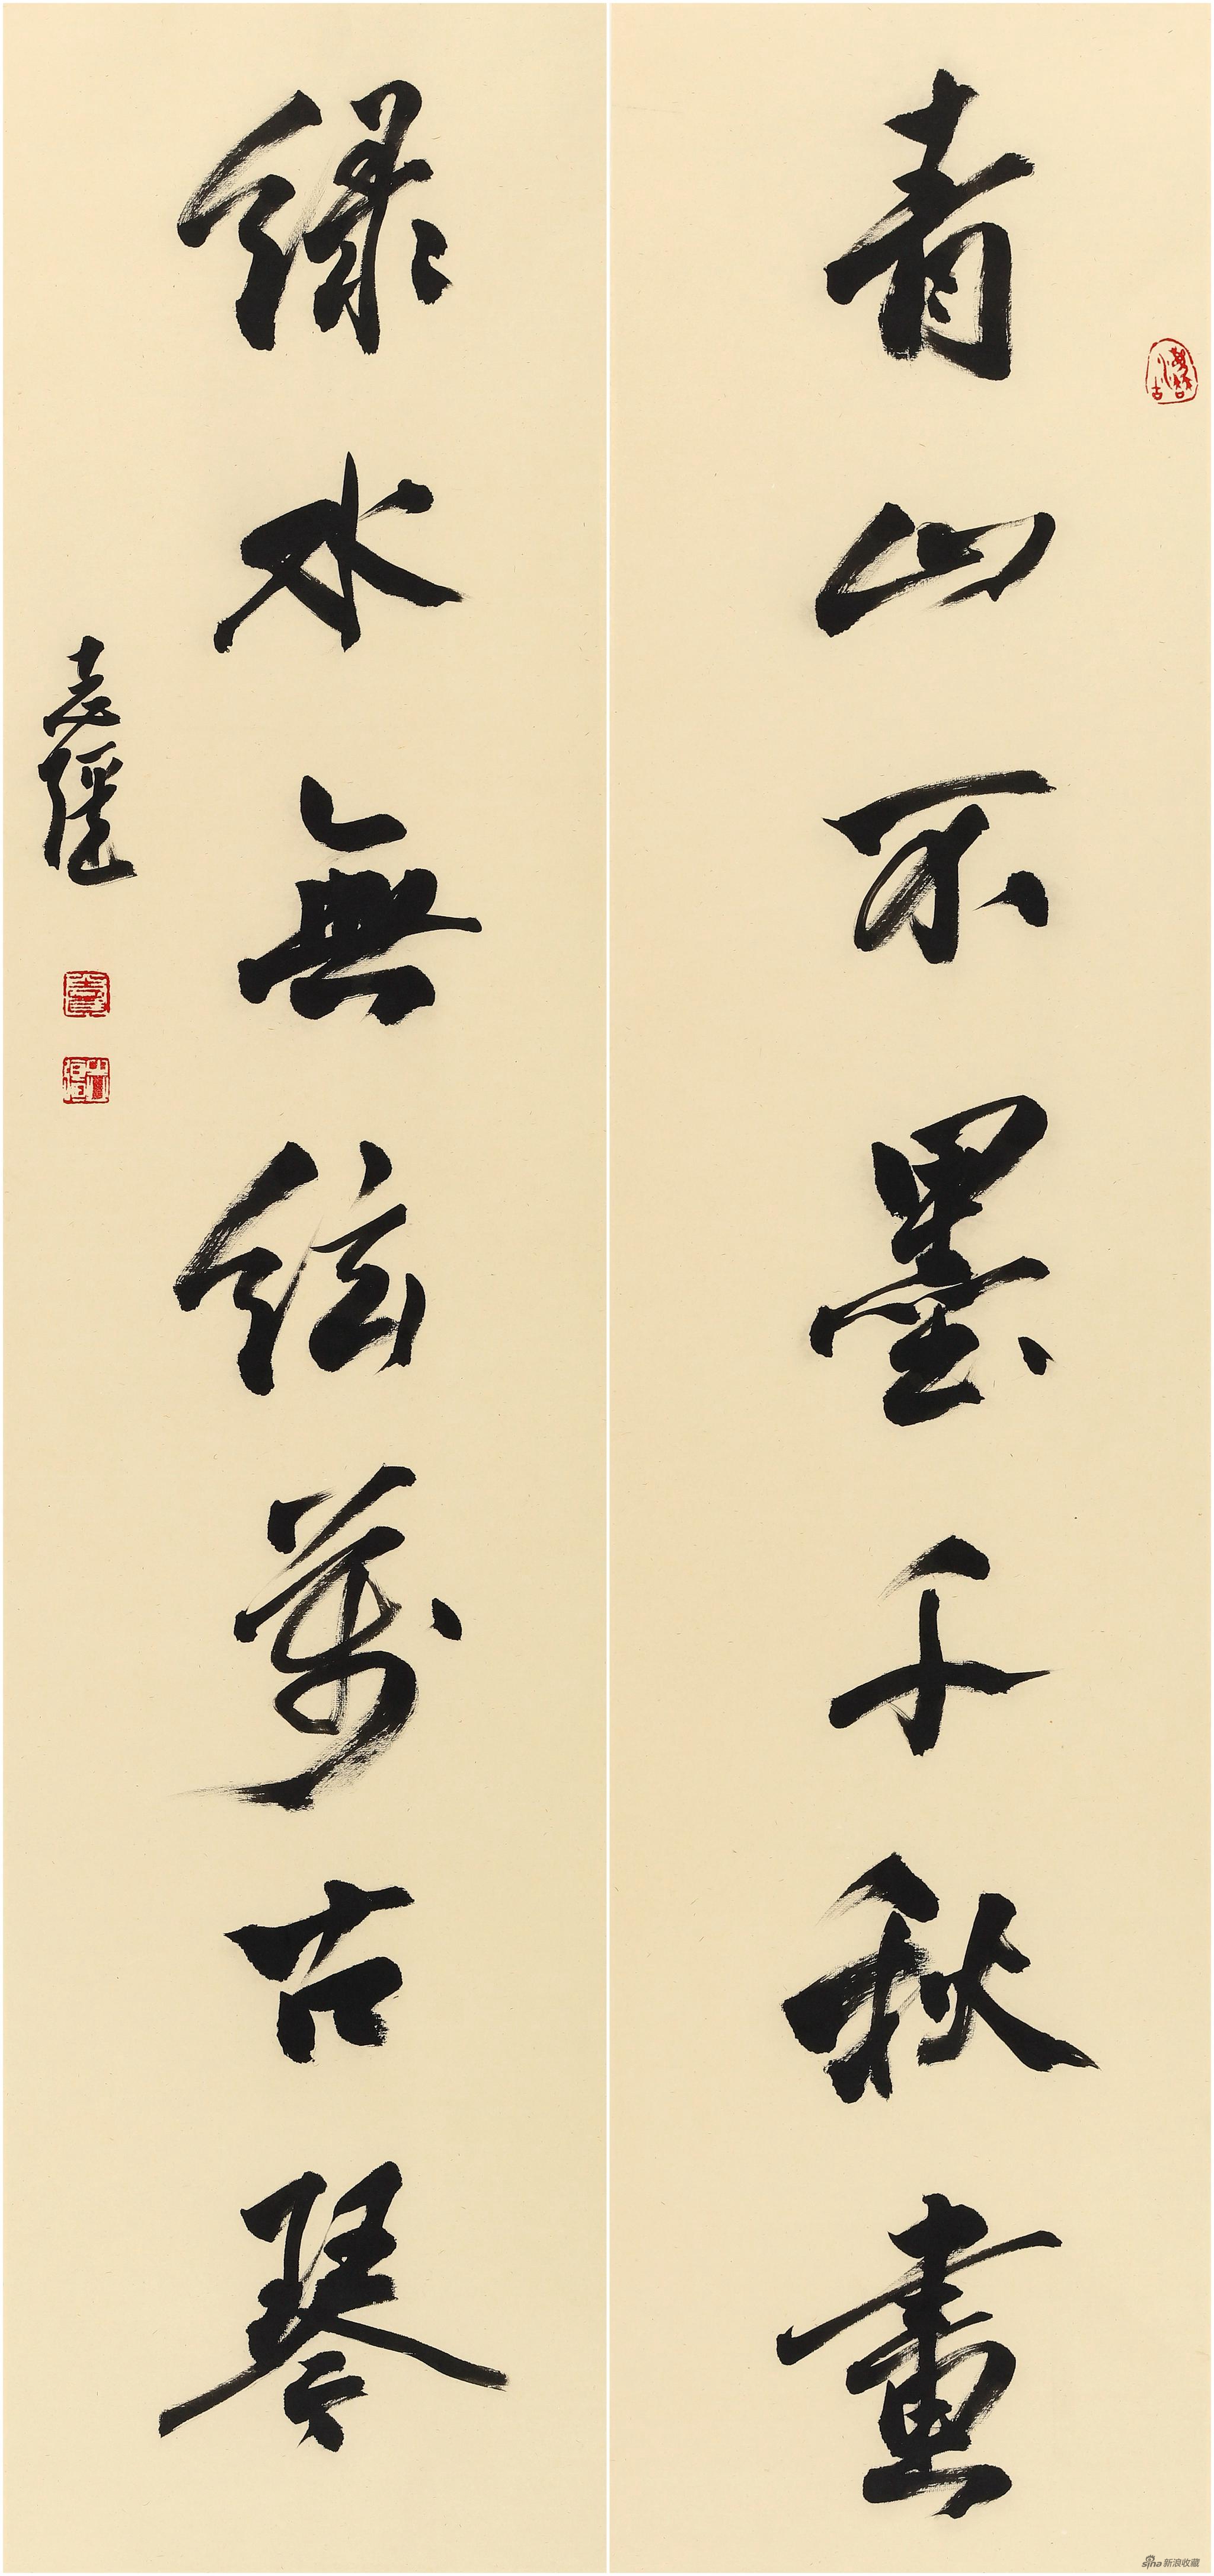 青山不墨千秋畫
綠水無弦萬古琴
sina 新浪收藏